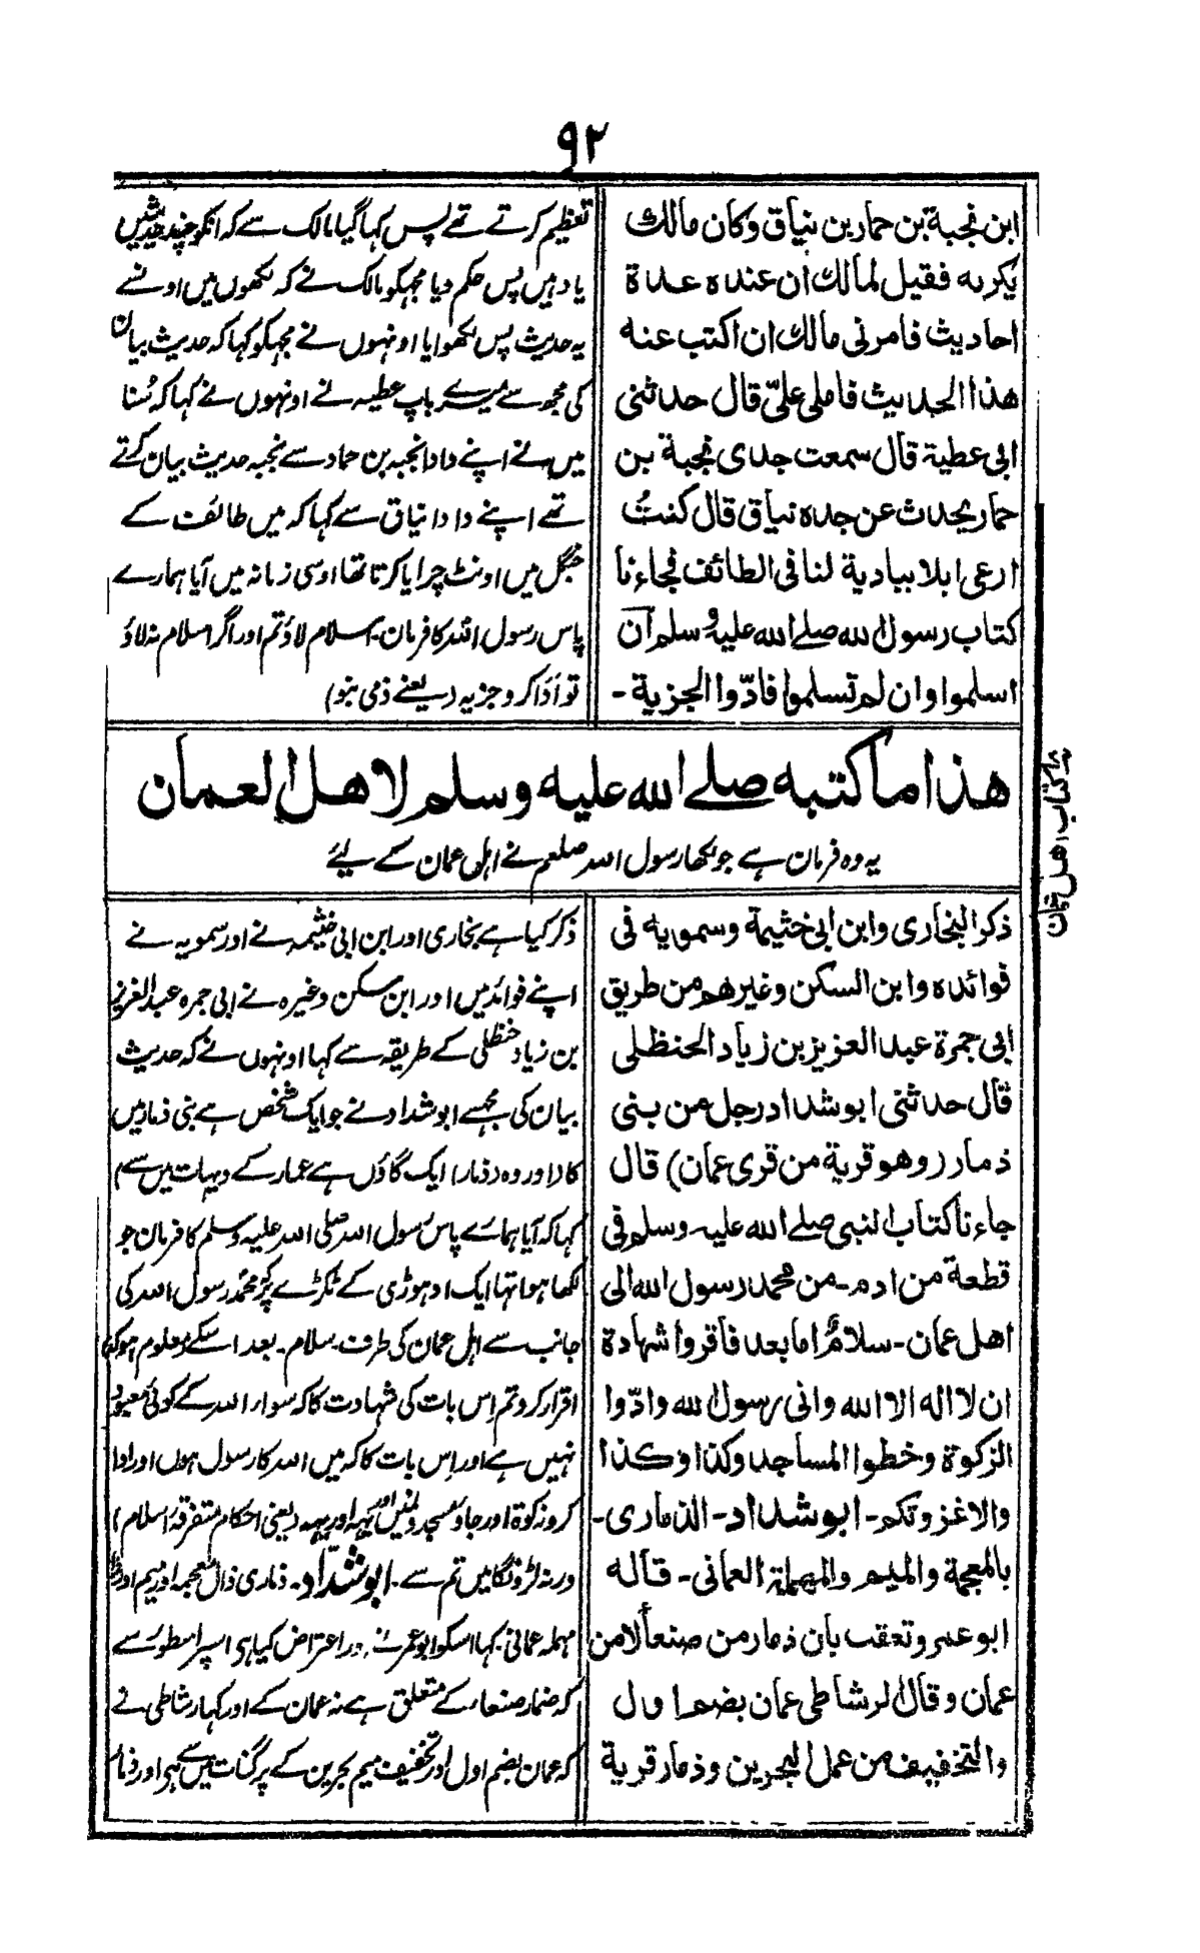 ۹۲
ابن نجبة بن حمار بن نياق وكان مالك
يكربه فقيل لمالك ان عنده عدة
احاديث فامرنى مالك ان اكتب عنه
هذا الحديث فاملى علىّ قال حدثنى
ابى عطية قال سمعت جدى نجبة بن
حمار يحدث عن جده نياق قال كنتُ
ارعى ابلا ببادية لنا فى الطائف فجاءنا
كتاب رسول الله صلے الله عليه وسلم ان
اسلموا وان لم تسلموا فادّوا الجزية -
تعظیم کرتے تھے پس کہا گیا مالک سے کہ انکو چند حدیثیں
یاد ہیں پس حکم دیا مجہکو مالک نے کہ لکھوں میں اونسے
یہ حدیث پس لکھوایا اونہوں نے مجہکو کہا کہ حدیث بیان
کی مجھ سے میرے باپ عطیہ نے اونہوں نے کہا کہ سُنا
میں نے اپنے دادا نجبہ بن حماد سے نجبہ حدیث بیان کرتے
تھے اپنے دادا نیاق سے کہا کہ میں طائف کے
جنگل میں اونٹ چرایا کرتا تھا اوسی زمانہ میں آیا ہمارے
پاس رسول اللہ کا فرمان - اسلام لاؤ تم اور اگر اسلام نہ لاؤ
تو اَدَا کرو جزیہ (یعنے ذمی بنو)
هذا ما كتبه صلے الله عليه وسلم لاهل العمان
یہ وہ فرمان ہے جو لکھا رسول اللہ صلعم نے اہل عمان کے لیئے
كتاب اهل عمان
ذكر البخارى وابن ابى خثيمة وسمويه فى
فوائده وابن السكن وغيرهم من طريق
ابى جمرة عبد العزيز بن زياد الحنظلى
قال حدثنى ابو شداد رجل من بنى
ذمار (وهو قرية من قرى عمان) قال
جاءنا كتاب النبى صلے الله عليه وسلم فى
قطعة من ادم - من محمد رسول الله الى
اهل عمان - سلامٌ اما بعد فاقروا شهادة
ان لا اله الا الله وانى رسول الله وادّوا
الزكوة وخطوا المساجد وكذا وكذا
والا غزوتكم - ابو شداد - الذمارى -
بالمعجمة والميم والمهملة العمانى - قاله
ابو عمر وتعقب بان ذمار من صنعأ لا من
عمان وقال الرشاطى عمان بضم اول
والتخفيف من عمل البحرين وذمار قرية
ذکر کیا ہے بخاری اور ابن ابی خثیمہ نے اور سمویہ نے
اپنے فوائد میں اور ابن سکن وغیرہ نے ابی جمرہ عبد العزیز
بن زیاد حنظلی کے طریقہ سے کہا اونہوں نے کہ حدیث
بیان کی مجہسے ابو شداد نے جو ایک شخص ہے بنی ذمار میں
کا (اور وہ (ذمار) ایک گاؤں ہے عمار کے دیہات میں سے)
کہا کہ آیا ہمارے پاس رسول اللہ صلی اللہ علیہ وسلم کا فرمان جو
لکھا ہوا تہا ایک ادہوڑی کے ٹکڑے پر محمد رسول اللہ کی
جانب سے اہل عمان کی طرف - سلام - بعد اسکے معلوم ہو کہ
اقرار کرو تم اِس بات کی شہادت کا کہ سوار اللہ کے کوئی معبود
نہیں ہے اور اِس بات کا کہ میں اللہ کا رسول ہوں اور ادا
کرو زکوٰۃ اور جاؤ مسجدوں میں اور یہہ اور یہہ (یعنی احکام متفرقہ اسلام)
ورنہ لڑونگا میں تم سے - ابو شدّاد - ذماری ذال معجمہ اور میم اور
مہملہ عمانی - کہا اسکو ابو عمر نے اور اعتراض کیا ہی اسپر اسطور سے
کہ ضمار صنعاء کے متعلق ہے نہ عمان کے اور کہا رشاطی نے
کہ عمان بضم اول اور تخفیف میم بحرین کے پرگنات میں سے ہے اور ذمار